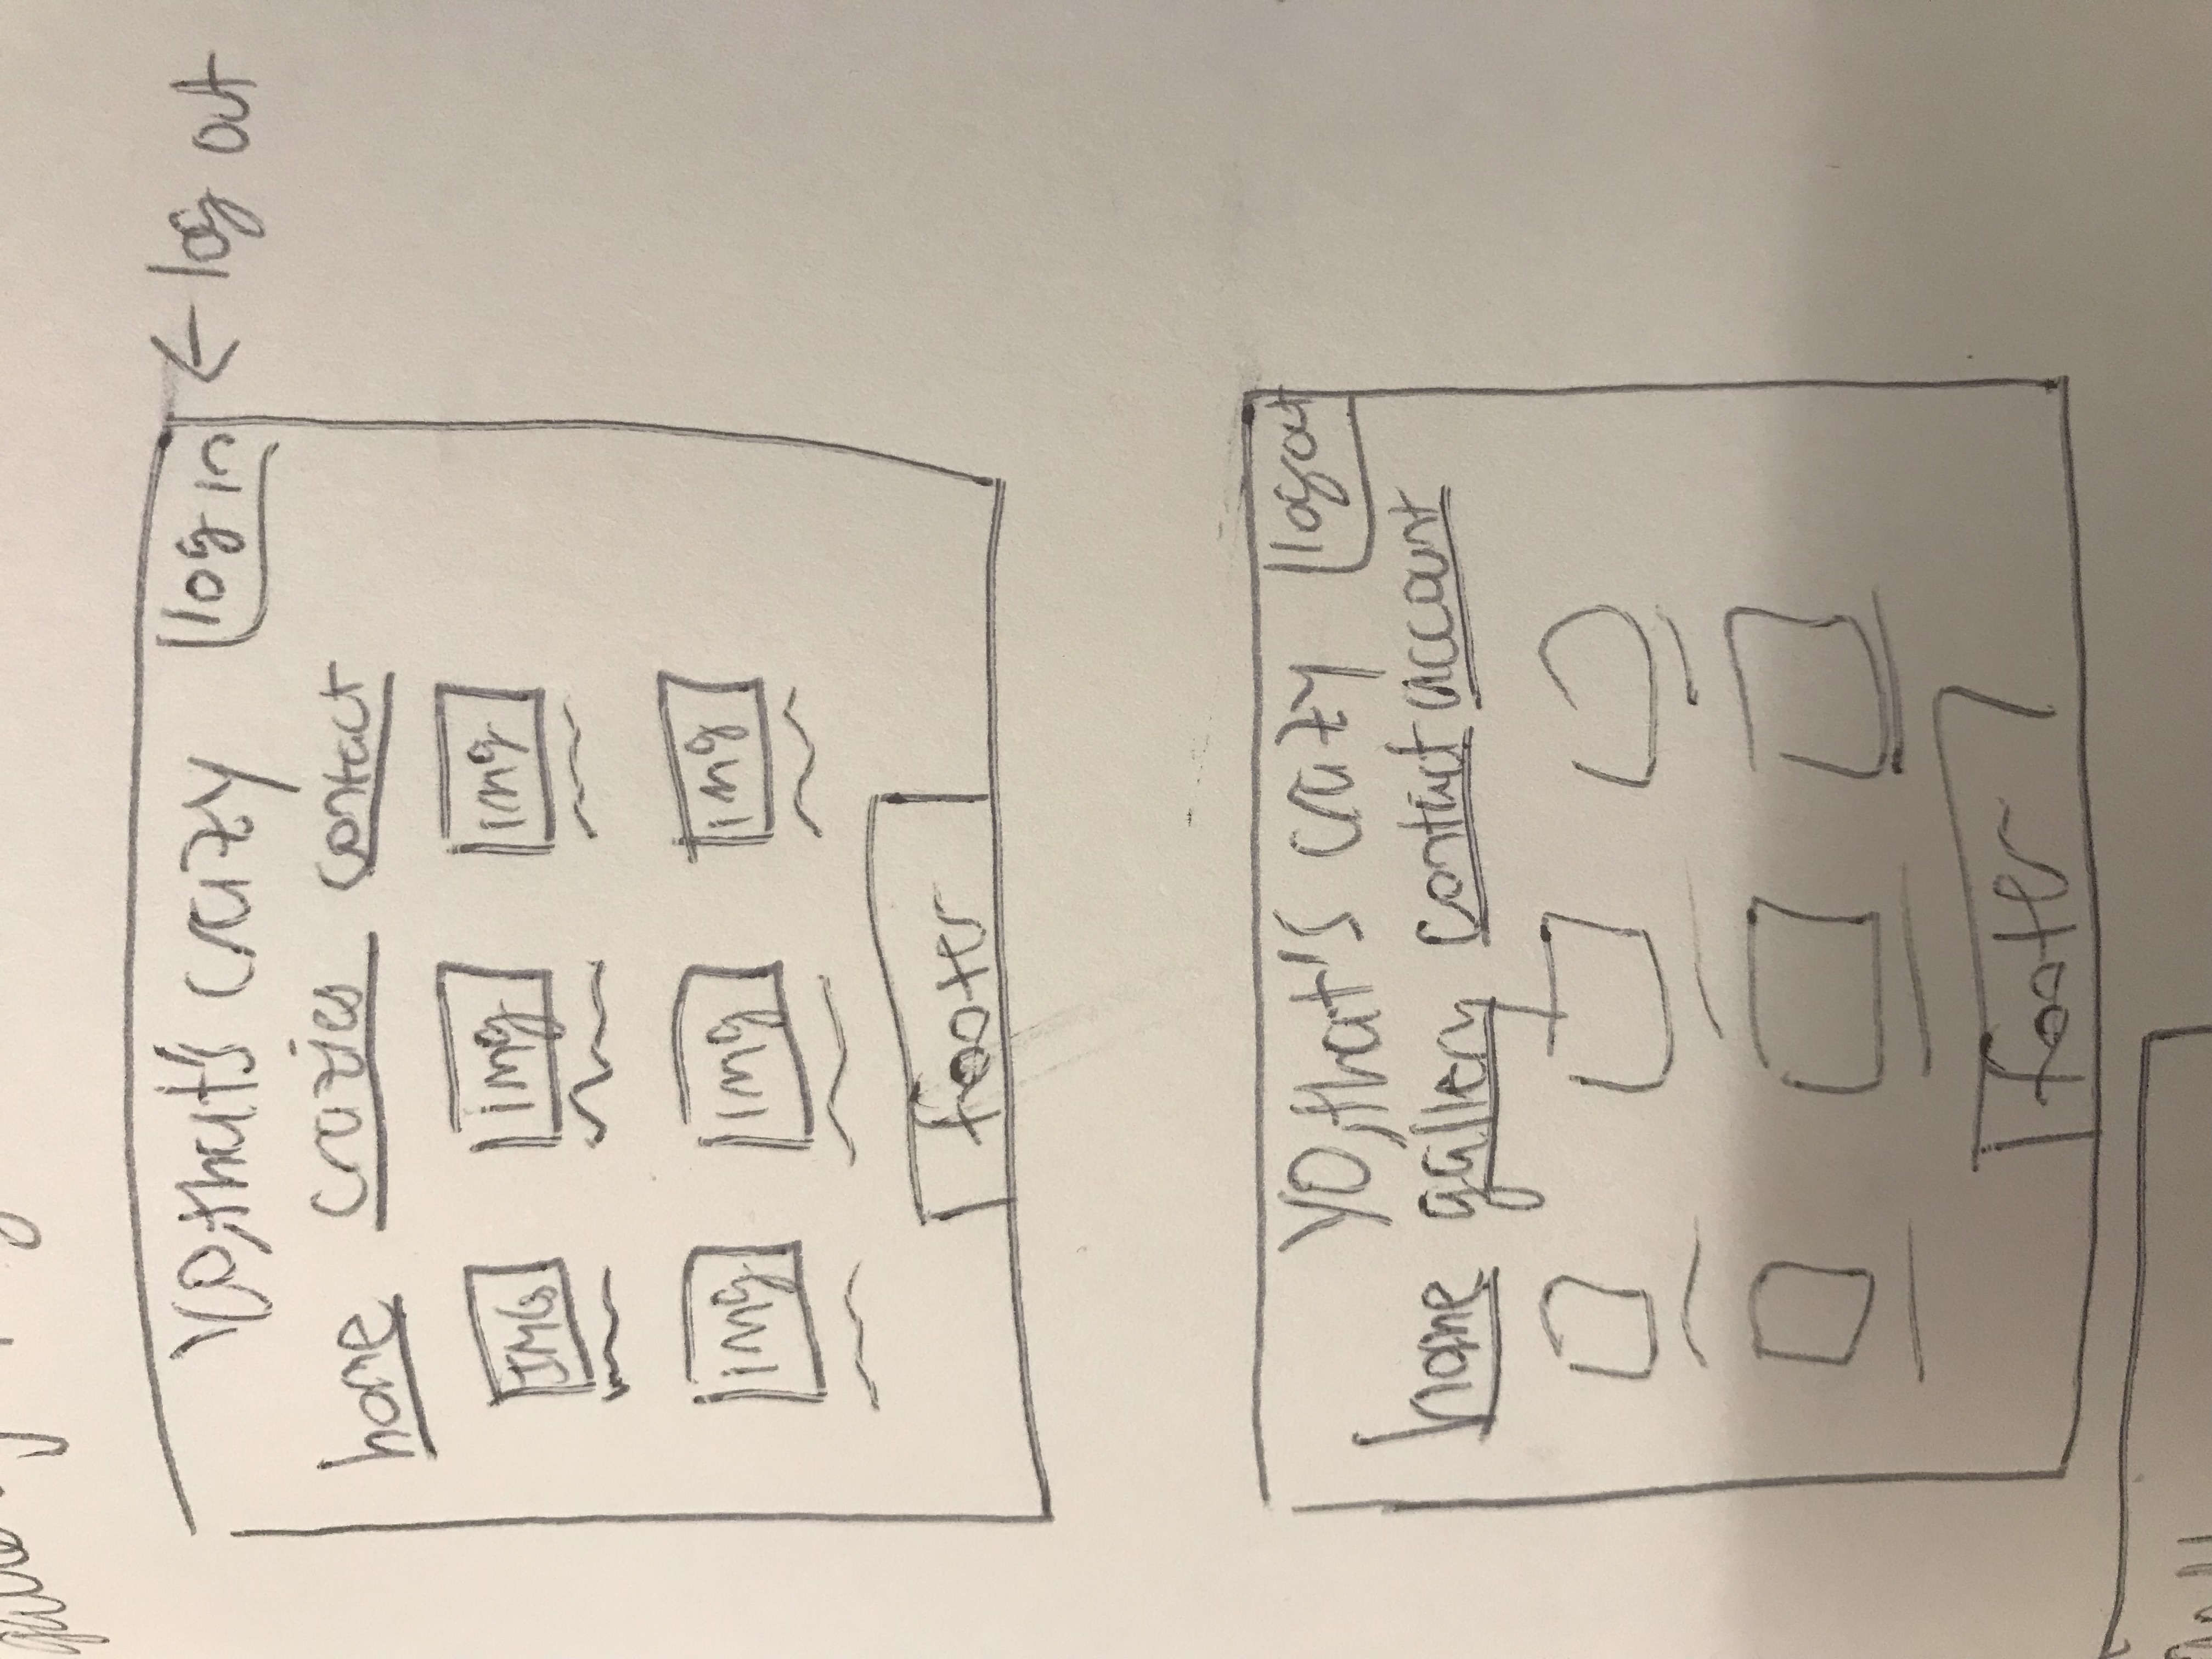 Yo, that's crazy log in ← log out
home crazies contact
IMG img img
img img img
footer
Yo, that's crazy logout
home gallery contact account
footer